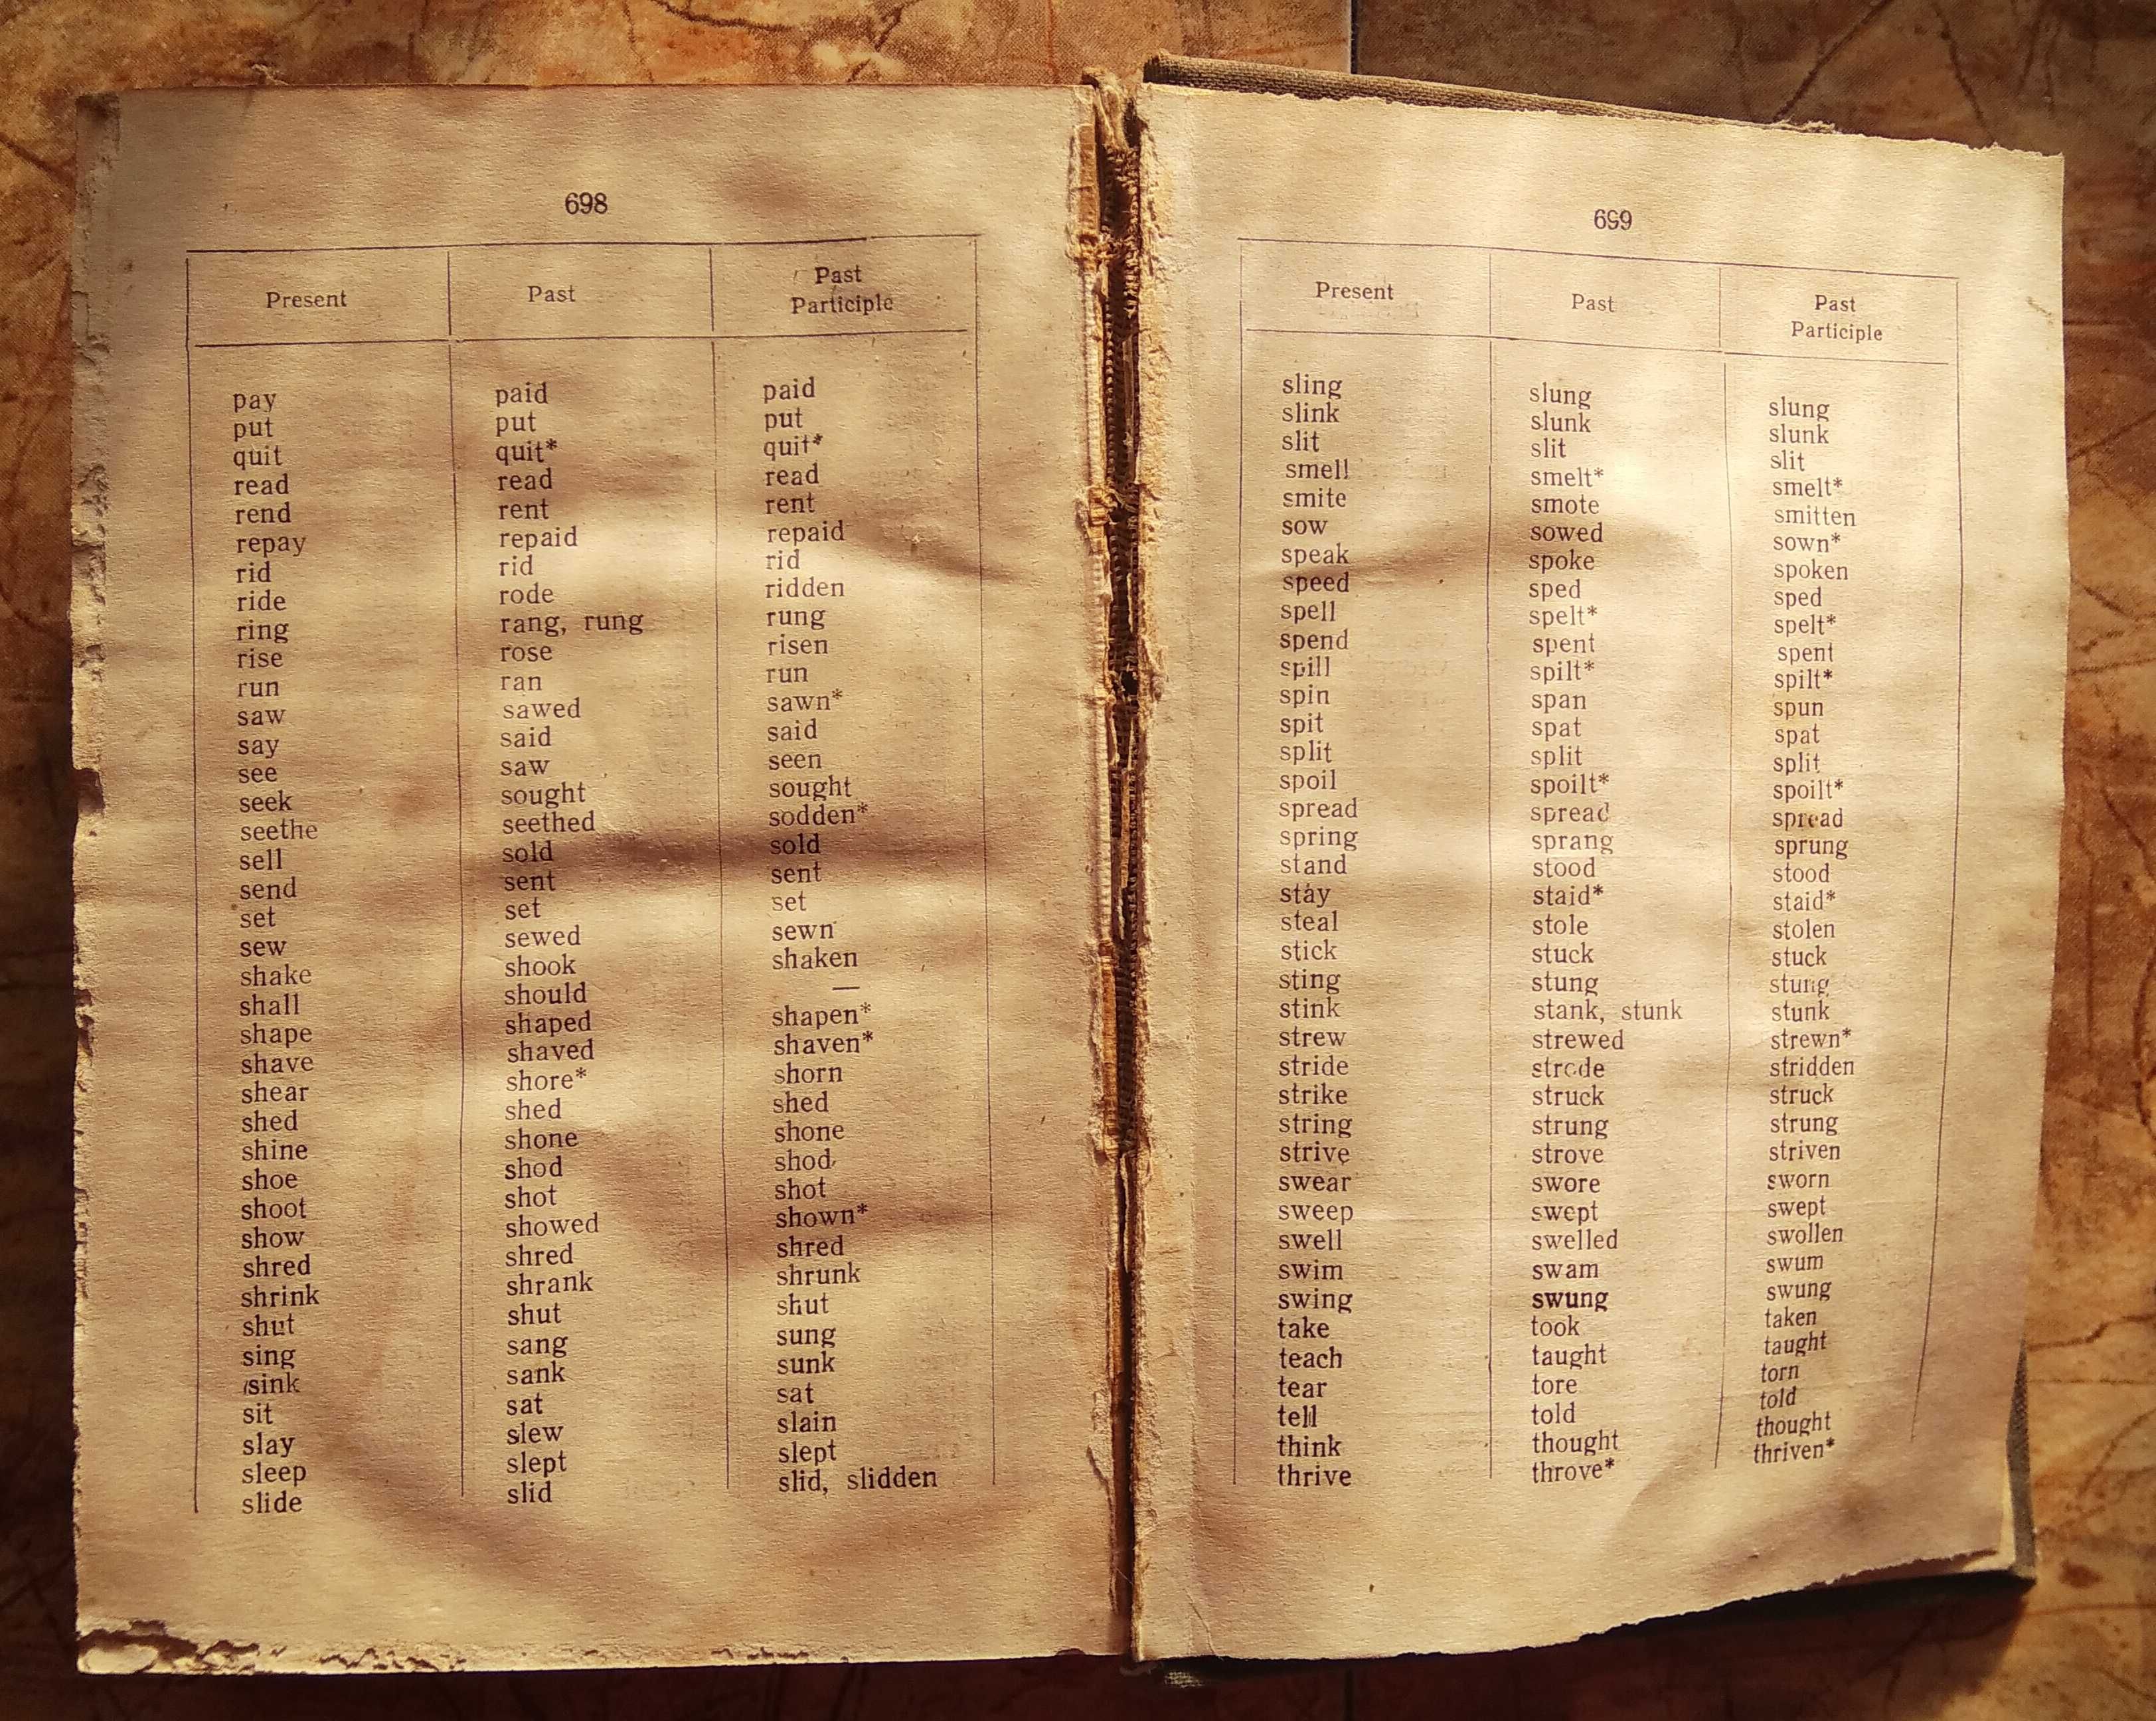 698
Present Past Past Participle
pay paid paid
put put put
quit quit* quit*
read read read
rend rent rent
repay repaid repaid
rid rid rid
ride rode ridden
ring rang, rung rung
rise rose risen
run ran run
saw sawed sawn*
say said said
see saw seen
seek sought sought
seethe seethed sodden*
sell sold sold
send sent sent
set set set
sew sewed sewn
shake shook shaken
shall should —
shape shaped shapen*
shave shaved shaven*
shear shore* shorn
shed shed shed
shine shone shone
shoe shod shod
shoot shot shot
show showed shown*
shred shred shred
shrink shrank shrunk
shut shut shut
sing sang sung
sink sank sunk
sit sat sat
slay slew slain
sleep slept slept
slide slid slid, slidden
699
Present Past Past Participle
sling slung slung
slink slunk slunk
slit slit slit
smell smelt* smelt*
smite smote smitten
sow sowed sown*
speak spoke spoken
speed sped sped
spell spelt* spelt*
spend spent spent
spill spilt* spilt*
spin span spun
spit spat spat
split split split
spoil spoilt* spoilt*
spread spread spread
spring sprang sprung
stand stood stood
stay staid* staid*
steal stole stolen
stick stuck stuck
sting stung stung
stink stank, stunk stunk
strew strewed strewn*
stride strode stridden
strike struck struck
string strung strung
strive strove striven
swear swore sworn
sweep swept swept
swell swelled swollen
swim swam swum
swing swung swung
take took taken
teach taught taught
tear tore torn
tell told told
think thought thought
thrive throve* thriven*